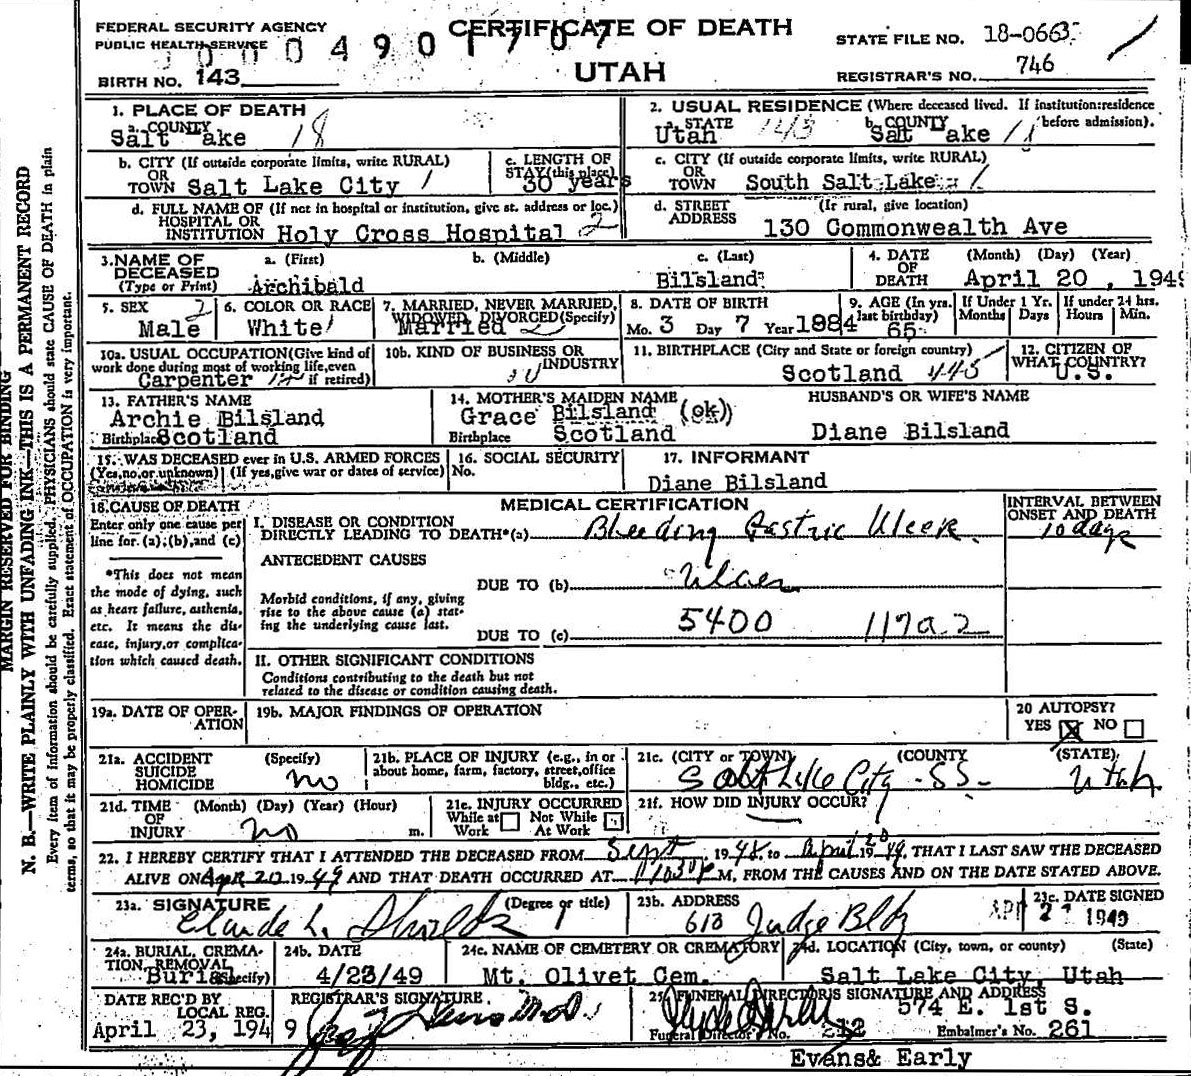 FEDERAL SECURITY AGENCY
PUBLIC HEALTH SERVICE
CERTIFICATE OF DEATH
STATE FILE NO. 18-0663
BIRTH NO. 143
UTAH
REGISTRAR'S NO. 746
1. PLACE OF DEATH
a. COUNTY Salt Lake 18
2. USUAL RESIDENCE (Where deceased lived. If institution:residence before admission).
a. STATE Utah 143 b. COUNTY Salt Lake 18
b. CITY (If outside corporate limits, write RURAL)
OR
TOWN Salt Lake City 1
c. LENGTH OF
STAY (this place)
30 years
c. CITY (If outside corporate limits, write RURAL)
OR
TOWN South Salt Lake
d. FULL NAME OF (If not in hospital or institution, give st. address or loc.)
HOSPITAL OR
INSTITUTION Holy Cross Hospital 2
d. STREET (If rural, give location)
ADDRESS 130 Commonwealth Ave
3. NAME OF
DECEASED
(Type or Print)
a. (First) b. (Middle) c. (Last)
Archibald Bilsland
4. DATE (Month) (Day) (Year)
OF
DEATH April 20, 1949
5. SEX 2
Male
6. COLOR OR RACE
White
7. MARRIED, NEVER MARRIED,
WIDOWED, DIVORCED (Specify)
Married 2
8. DATE OF BIRTH
Mo. 3 Day 7 Year 1884
9. AGE (In yrs. last birthday)
65
If Under 1 Yr.
Months Days
If under 24 hrs.
Hours Min.
10a. USUAL OCCUPATION (Give kind of
work done during most of working life, even
Carpenter if retired)
10b. KIND OF BUSINESS OR
INDUSTRY
11. BIRTHPLACE (City and State or foreign country)
Scotland 443
12. CITIZEN OF
WHAT COUNTRY?
U.S.
13. FATHER'S NAME
Archie Bilsland
Birthplace Scotland
14. MOTHER'S MAIDEN NAME
Grace Bilsland (ok)
Birthplace Scotland
HUSBAND'S OR WIFE'S NAME
Diane Bilsland
15. WAS DECEASED ever in U.S. ARMED FORCES
(Yes, no, or unknown) (If yes, give war or dates of service)
16. SOCIAL SECURITY
No.
17. INFORMANT
Diane Bilsland
18. CAUSE OF DEATH
Enter only one cause per
line for (a), (b), and (c)
MEDICAL CERTIFICATION
INTERVAL BETWEEN
ONSET AND DEATH
I. DISEASE OR CONDITION
DIRECTLY LEADING TO DEATH*(a) Bleeding Gastric Ulcer
10 days
*This does not mean
the mode of dying, such
as heart failure, asthenia,
etc. It means the dis-
ease, injury, or complica-
tion which caused death.
ANTECEDENT CAUSES
DUE TO (b) Ulcer
Morbid conditions, if any, giving
rise to the above cause (a) stat-
ing the underlying cause last.
DUE TO (c) 5400 117a.2
II. OTHER SIGNIFICANT CONDITIONS
Conditions contributing to the death but not
related to the disease or condition causing death.
19a. DATE OF OPER-
ATION
19b. MAJOR FINDINGS OF OPERATION
20 AUTOPSY?
YES NO
21a. ACCIDENT (Specify)
SUICIDE
HOMICIDE no
21b. PLACE OF INJURY (e.g., in or
about home, farm, factory, street, office
bldg., etc.)
21c. (CITY or TOWN) (COUNTY) (STATE)
Salt Lake City - SS - Utah
21d. TIME (Month) (Day) (Year) (Hour)
OF
INJURY no m.
21e. INJURY OCCURRED
While at Not While
Work At Work
21f. HOW DID INJURY OCCUR?
22. I HEREBY CERTIFY THAT I ATTENDED THE DECEASED FROM Sept 1948, to April 20 1949, THAT I LAST SAW THE DECEASED
ALIVE ON Apr 20 1949 AND THAT DEATH OCCURRED AT M., FROM THE CAUSES AND ON THE DATE STATED ABOVE.
23a. SIGNATURE (Degree or title)
Claude L. Shields
23b. ADDRESS
613 Judge Bldg
23c. DATE SIGNED
APR 21 1949
24a. BURIAL, CREMA-
TION, REMOVAL
Burial (Specify)
24b. DATE
4/23/49
24c. NAME OF CEMETERY OR CREMATORY
Mt. Olivet Cem.
24d. LOCATION (City, town, or county) (State)
Salt Lake City, Utah
DATE REC'D BY
LOCAL REG.
April 23, 1949
REGISTRAR'S SIGNATURE
M.D.
25. FUNERAL DIRECTOR'S SIGNATURE AND ADDRESS
574 E. 1st S.
Funeral Director's No. 212 Embalmer's No. 261
Evans& Early
N. B.—WRITE PLAINLY WITH UNFADING INK—THIS IS A PERMANENT RECORD
MARGIN RESERVED FOR BINDING
Every item of information should be carefully supplied. PHYSICIANS should state CAUSE OF DEATH in plain
terms, so that it may be properly classified. Exact statement of OCCUPATION is very important.